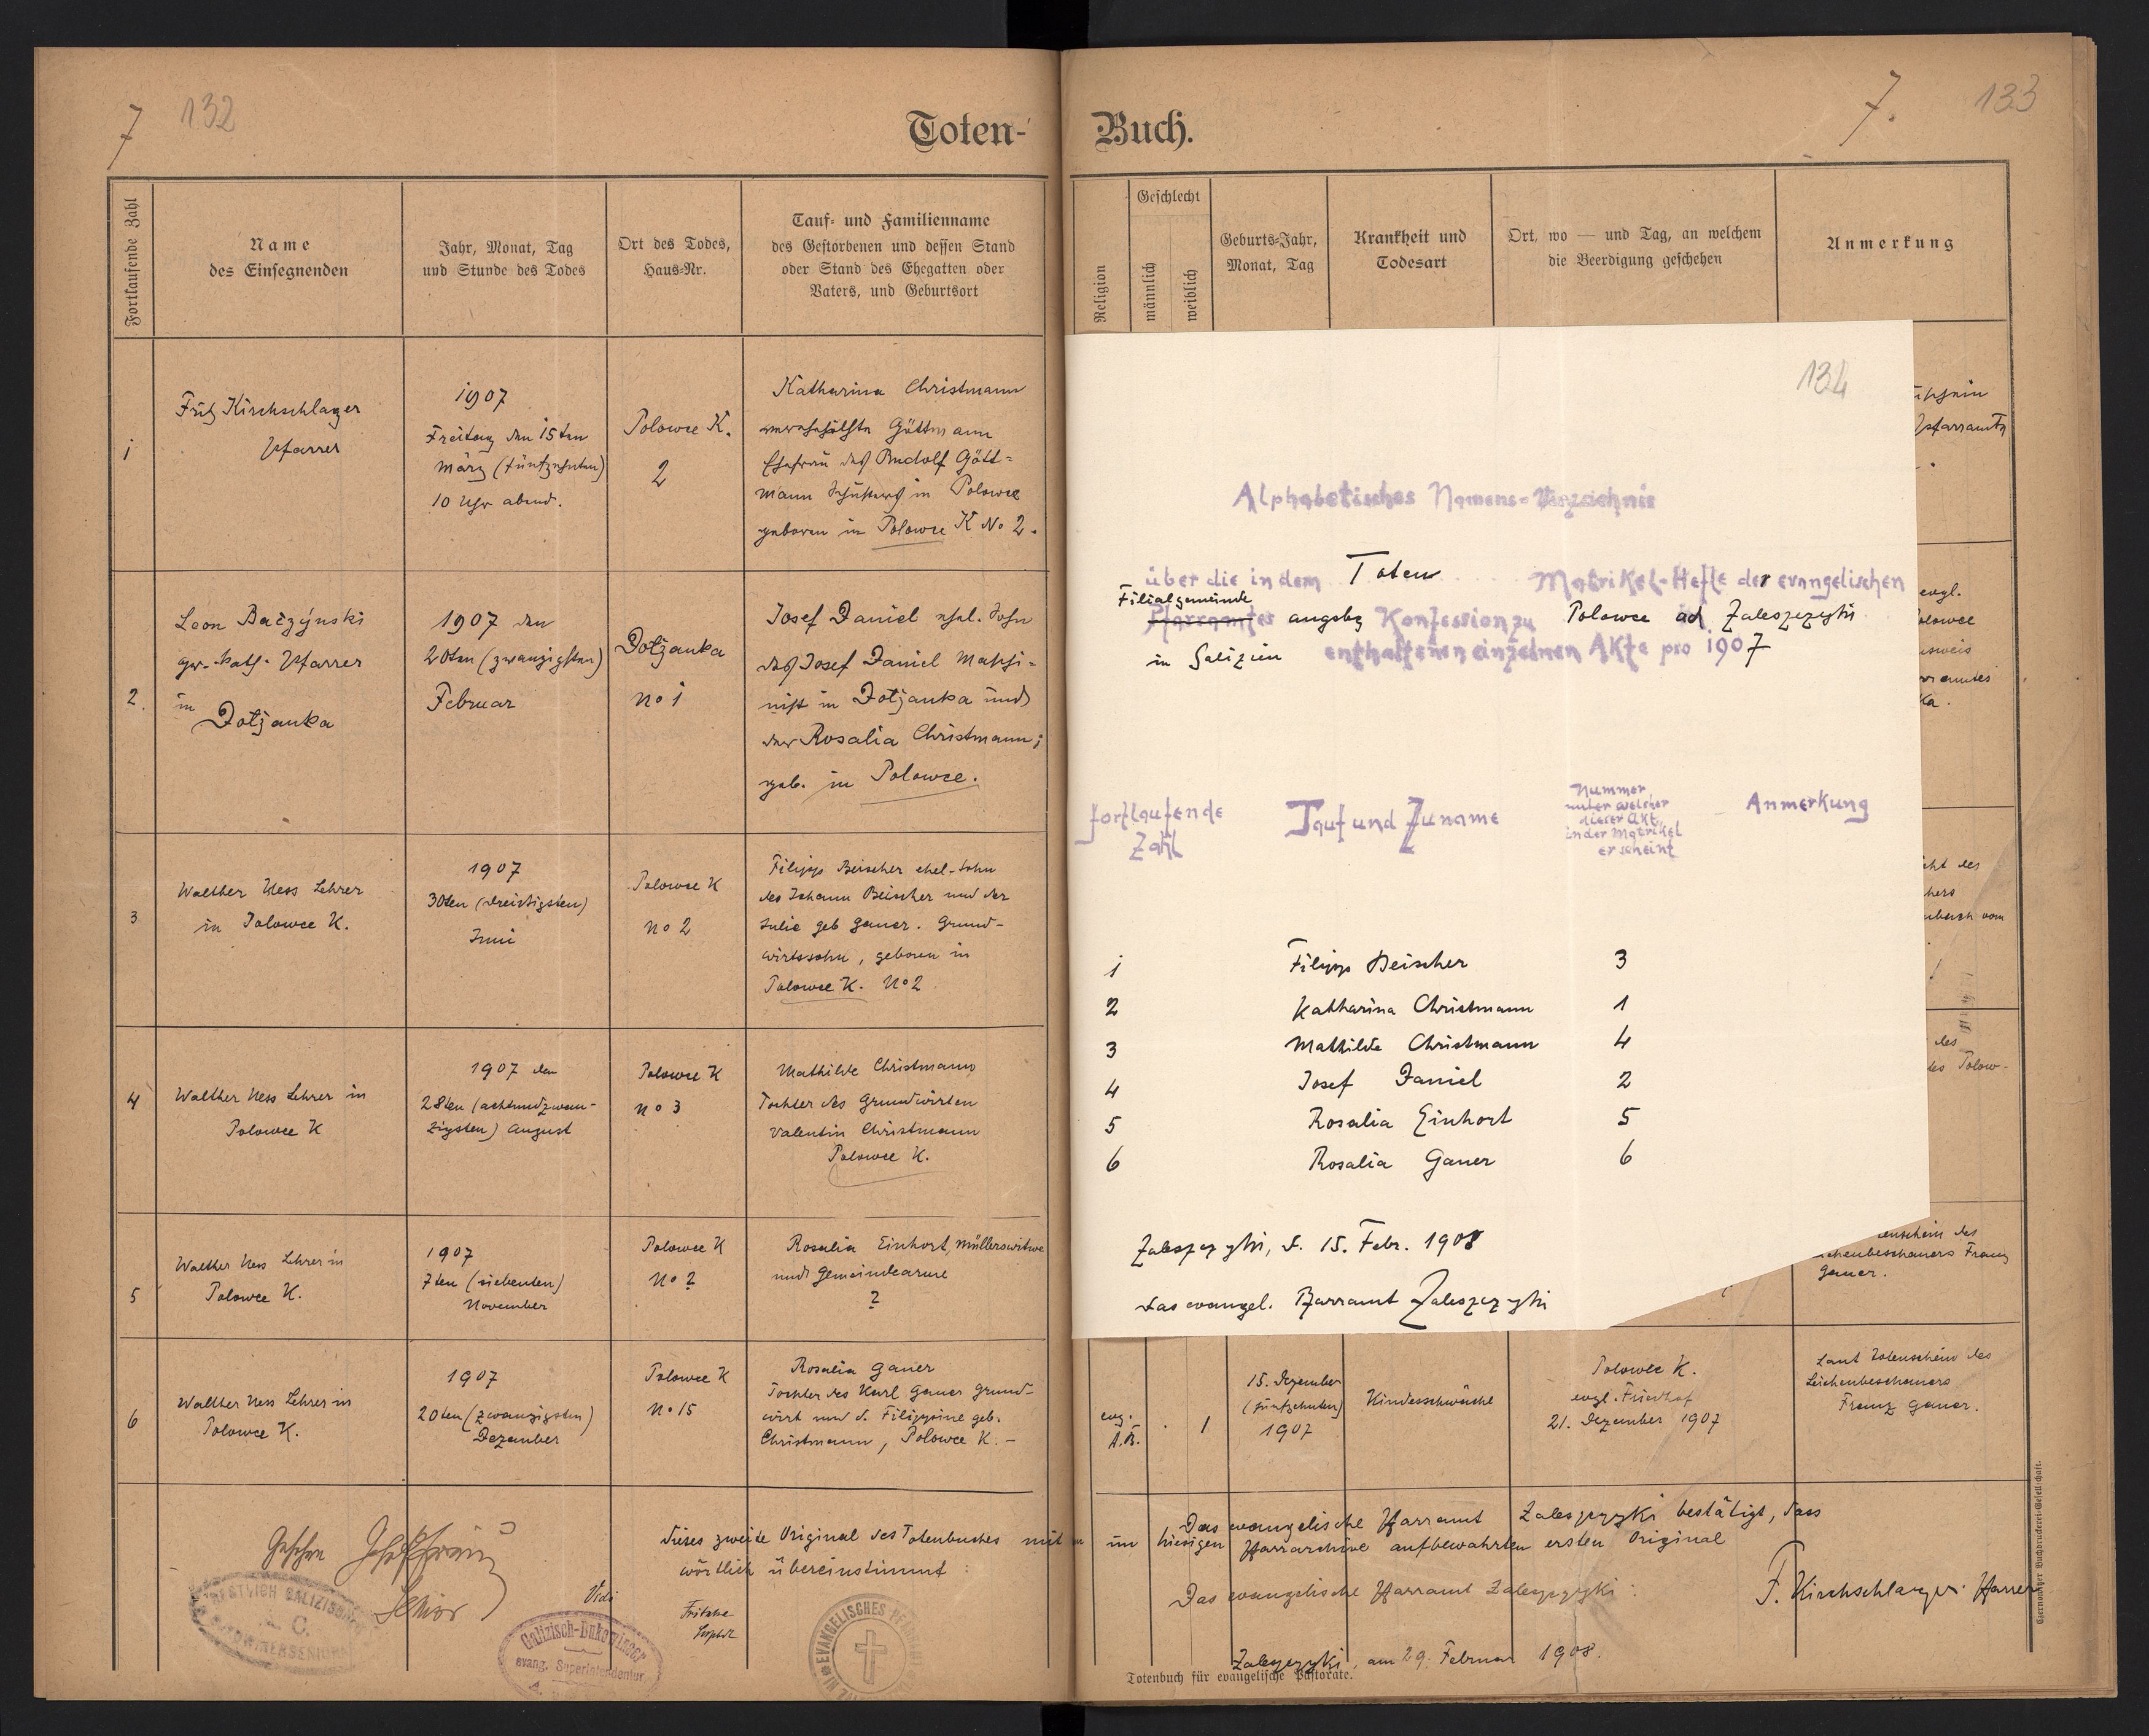 7 132
Toten-
Buch.
7. 133
Fortlaufende Zahl
Name
des Einsegnenden
Jahr, Monat, Tag
und Stunde des Todes
Ort des Todes,
Haus-Nr.
Tauf- und Familienname
des Gestorbenen und dessen Stand
oder Stand des Ehegatten oder
Vaters, und Geburtsort
Religion
Geschlecht
männlich
weiblich
Geburts-Jahr,
Monat, Tag
Krankheit und
Todesart
Ort, wo — und Tag, an welchem
die Beerdigung geschehen
Anmerkung
1
Fritz Kirchschlager
Pfarrer
1907
Freitag den 15ten
März (fünfzehnten)
10 Uhr abend.
Polowce K.
2
Katharina Christmann
verehelichte Göttmann
Ehefrau des Rudolf Gött-
mann in Polowce
geboren in Polowce K No 2.
2.
Leon Baczyński
gr.-kath. Pfarrer
in
Dołżanka
1907 den
20ten (zwanzigsten)
Februar
Dołżanka
No 1
Josef Daniel ehel. Sohn
des Josef Daniel Maschi-
nist in Dołżanka und
der Rosalia Christmann;
geb. in Polowce.
3
Walther Hess Lehrer
in Polowce K.
1907
30ten (dreissigsten)
Juni
Polowce K
No 2
Filipp Beischer ehel. Sohn
des Johann Beischer und der
Julie geb Gauer. Grund-
wirtssohn, geboren in
Polowce K. No 2
4
Walther Hess Lehrer in
Polowce K
1907 den
28ten (achtundzwan-
zigsten) August
Polowce K
No 3
Mathilde Christmann
Tochter des Grundwirten
Valentin Christmann
Polowce K.
5
Walther Hess Lehrer in
Polowce K.
1907
7ten (siebenten)
November
Polowce K
No ?
Rosalia Einhort, Müllerswitwe
und Gemeindearme
?
6
Walther Hess Lehrer in
Polowce K.
1907
20ten (zwanzigsten)
Dezember
Polowce K
No 15
Rosalia Gauer
Tochter des Karl Gauer Grund-
wirt und d. Filippine geb.
Christmann, Polowce K. —
134
Alphabetisches Namens-Verzeichnis
über die in dem Toten Matrikel-Hefte der evangelischen
Filialgemeinde
Pfarramtes augsbg Konfession zu Polowce ad Zaleszczyki
in Galizien enthaltenen einzelnen Akte pro 1907
fortlaufende
Zahl
Tauf und Zuname
Nummer
unter welcher
dieser Akt
in der Matrikel
erscheint
Anmerkung
1 Filipp Beischer 3
2 Katharina Christmann 1
3 Mathilde Christmann 4
4 Josef Daniel 2
5 Rosalia Einhort 5
6 Rosalia Gauer 6
Zaleszczyki, d. 15. Febr. 1908
das evangel. Pfarramt Zaleszczyki
Pfarramts
evgl.
des
des Polow-
des
Franz
Gauer.
evg.
A.B.
. 1
15. Dezember
(fünfzehnten)
1907
Kindesschwäche
Polowce K.
evgl. Friedhof
21. Dezember 1907
Laut Totenschein des
Leichenbeschauers
Franz Gauer.
Das evangelische Pfarramt Zaleszczyki bestätigt, dass
dieses zweite Original des Totenbuches mit im hiesigen Pfarrarchive aufbewahrten ersten Original
wörtlich übereinstimmt:
Das evangelische Pfarramt Zaleszczyki:
F. Kirchschlager Pfarrer
Zaleszczyki, am 29. Februar 1908.
Gesehen
Senior
Vidi
Fritsche
Galizisch-Bukowinaer
evang. Superintendentur
EVANGELISCHES
Totenbuch für evangelische Pastorate.
Czernowitzer Buchdruckerei-Gesellschaft.